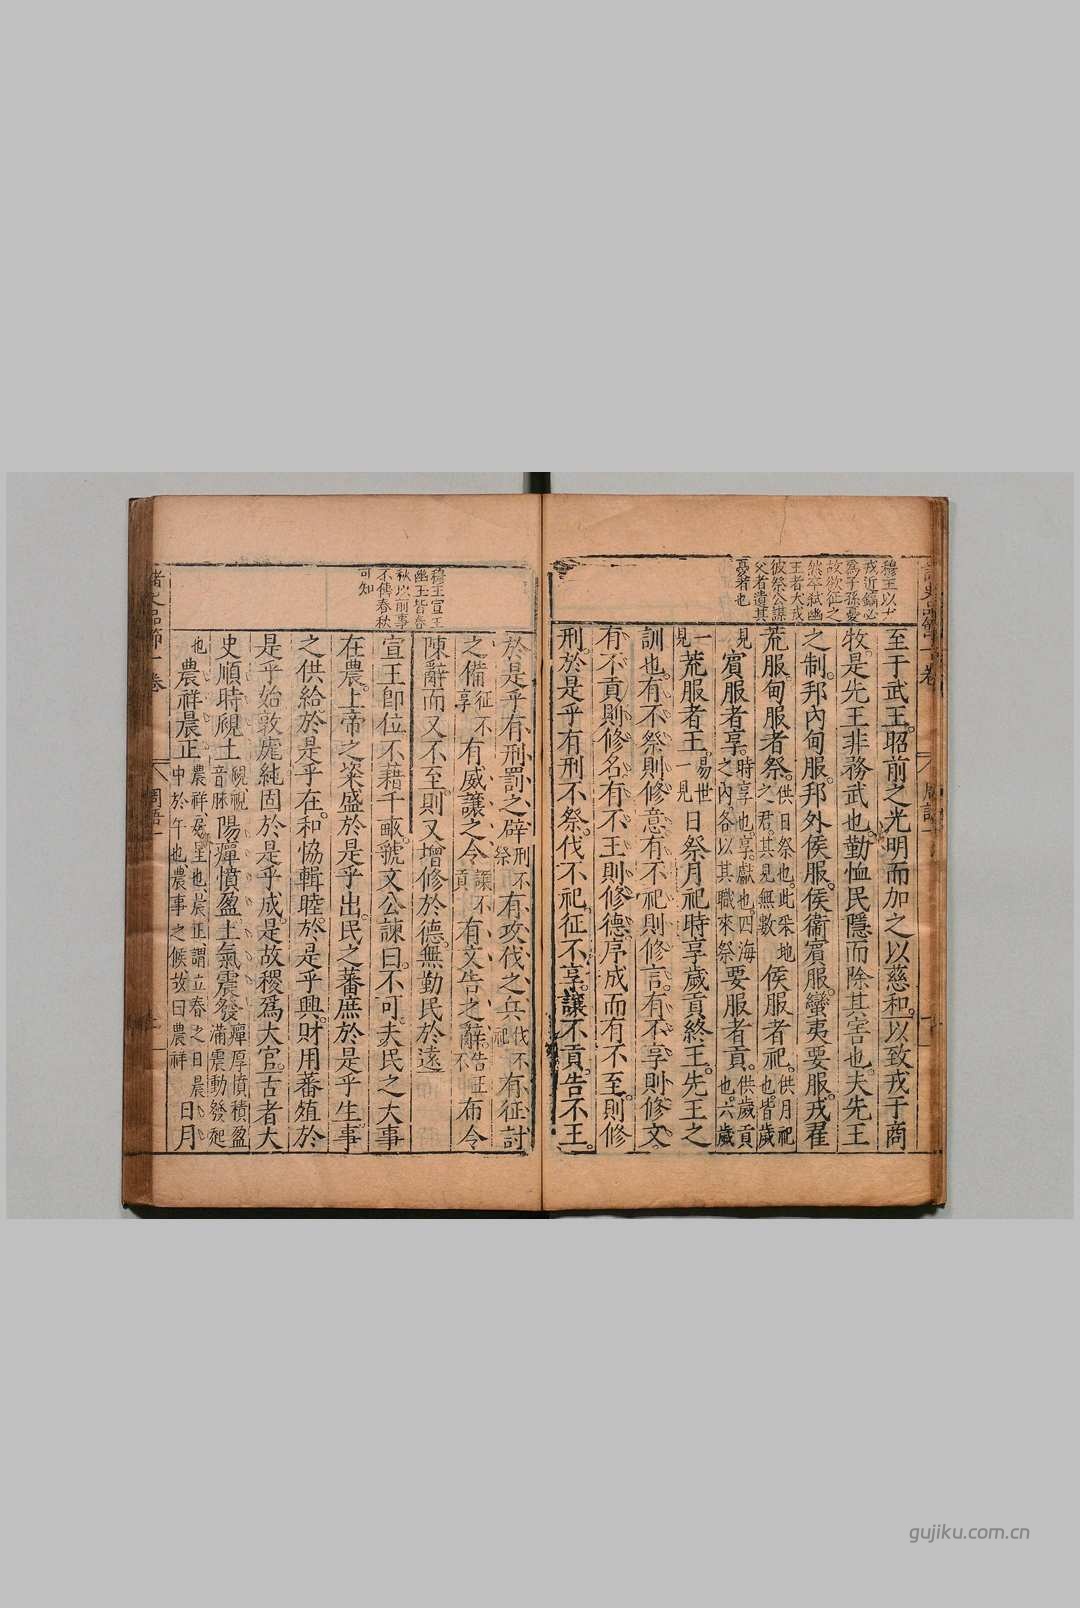 穆王以犬
戎近鎬必
爲子孫憂
故欲征之
然卒弒幽
王者犬戎
彼祭公謀
父者遺其
憂者也
至于武王。昭前之光明而加之以慈和。以致戎于商
牧。是先王非務武也。勤恤民隱而除其害也。夫先王
之制。邦內甸服。邦外侯服。侯衞賓服。蠻夷要服。戎翟
荒服。甸服者祭。供日祭也。此采地之君。其見無數侯服者祀。供月祀也。皆歲
見賓服者享。時享也。享獻也。四海之內。各以其職來祭要服者貢。供歲貢也。六歲
一見荒服者王。易世一見日祭月祀時享歲貢終王。先王之
訓也。有不祭則修意。有不祀則修言。有不享則修文。
有不貢則修名。有不王則修德。序成而有不至。則修
刑。於是乎有刑不祭。伐不祀。征不享。讓不貢。告不王。
穆王宣王
幽王皆春
秋以前事
不傳春秋
可知
於是乎有刑罰之辟刑不祭有攻伐之兵伐不祀有征討
之備征不享有威讓之令讓不貢有文告之辭。告不王布令
陳辭而又不至。則又增修於德。無勤民於遠
宣王卽位不藉千畝。虢文公諫曰。不可。夫民之大事
在農。上帝之粢盛於是乎出。民之蕃庶於是乎生。事
之供給於是乎在。和協輯睦。於是乎興。財用蕃殖於
是乎始敦厖純固於是乎成。是故稷爲大官。古者大
史順時覛土覛視音脉陽癉憤盈土氣震發癉厚憤積盈滿震動發起
也農祥晨正農祥房星也。晨正。謂立春之日晨中於午也。農事之候故曰農祥日月
諸史品節一卷
周語一